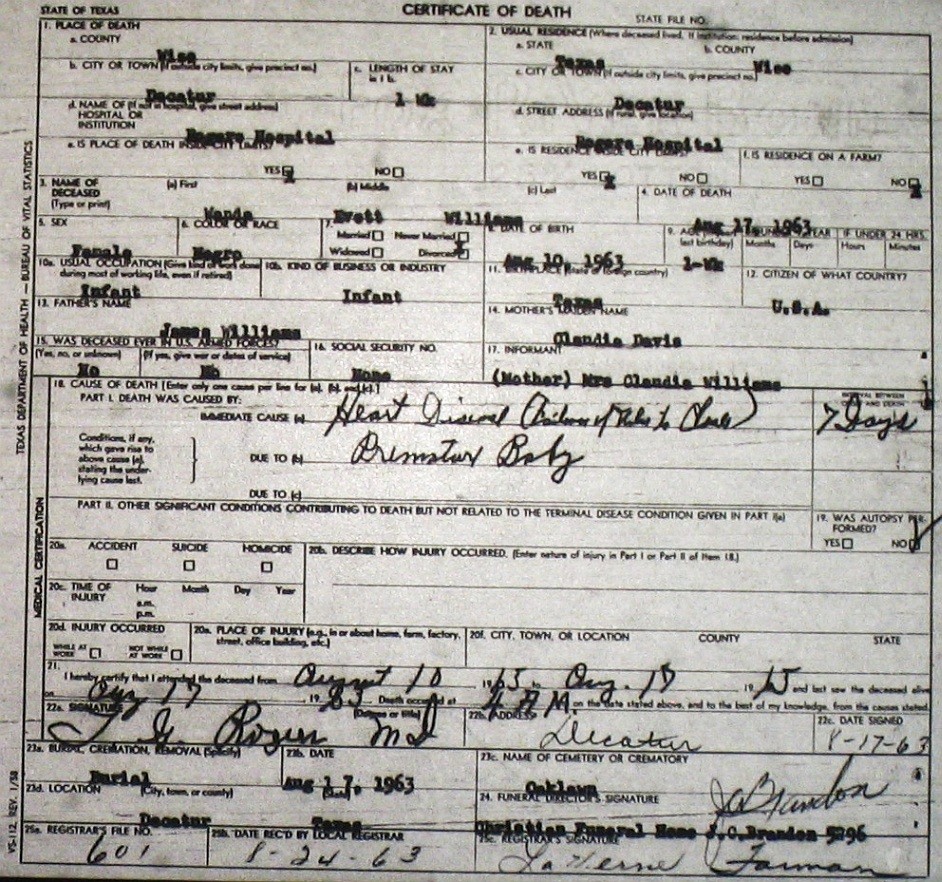 STATE OF TEXAS
CERTIFICATE OF DEATH
STATE FILE NO.
1. PLACE OF DEATH
a. COUNTY
Wise
2. USUAL RESIDENCE (Where deceased lived. If institution: residence before admission)
a. STATE
Texas
b. COUNTY
Wise
b. CITY OR TOWN (If outside city limits, give precinct no.)
Decatur
c. LENGTH OF STAY in 1 b.
1 Wk
c. CITY OR TOWN (If outside city limits, give precinct no.)
Decatur
d. NAME OF (If not in hospital, give street address)
HOSPITAL OR
INSTITUTION
Rogers Hospital
d. STREET ADDRESS (If rural, give location)
Rogers Hospital
e. IS PLACE OF DEATH INSIDE CITY LIMITS?
YES NO
e. IS RESIDENCE INSIDE CITY LIMITS?
YES NO
f. IS RESIDENCE ON A FARM?
YES NO
3. NAME OF
DECEASED
(Type or print)
(a) First
(b) Middle
(c) Last
Evett Williams
4. DATE OF DEATH
Aug 17, 1963
5. SEX
Female
6. COLOR OR RACE
Negro
7.
Married Never Married
Widowed Divorced
8. DATE OF BIRTH
Aug 10, 1963
9. AGE
last birthday)
1-Wk
YEAR
Months Days
IF UNDER 24 HRS.
Hours Minutes
10a. USUAL OCCUPATION (Give kind of work done
during most of working life, even if retired)
Infant
10b. KIND OF BUSINESS OR INDUSTRY
Infant
11. BIRTHPLACE (State or foreign country)
Texas
12. CITIZEN OF WHAT COUNTRY?
U.S.A.
13. FATHER'S NAME
James Williams
14. MOTHER'S MAIDEN NAME
Claudia Davis
15. WAS DECEASED EVER IN U.S. ARMED FORCES?
(Yes, no, or unknown)
(If yes, give war or dates of service)
No
No
16. SOCIAL SECURITY NO.
None
17. INFORMANT
(Mother) Mrs Claudia Williams
18. CAUSE OF DEATH [Enter only one cause per line for (a), (b), and (c).]
PART I. DEATH WAS CAUSED BY:
IMMEDIATE CAUSE (a)
Heart
INTERVAL BETWEEN
7 Days
Conditions, if any,
which gave rise to
above cause (a),
stating the under-
lying cause last.
DUE TO (b)
Baby
DUE TO (c)
PART II. OTHER SIGNIFICANT CONDITIONS CONTRIBUTING TO DEATH BUT NOT RELATED TO THE TERMINAL DISEASE CONDITION GIVEN IN PART I(a)
19. WAS AUTOPSY PER-
FORMED?
YES NO
20a. ACCIDENT SUICIDE HOMICIDE
20b. DESCRIBE HOW INJURY OCCURRED. (Enter nature of injury in Part I or Part II of Item 18.)
20c. TIME OF
INJURY
Hour Month Day Year
a.m.
p.m.
20d. INJURY OCCURRED
WHILE AT
WORK
NOT WHILE
AT WORK
20e. PLACE OF INJURY (e.g., in or about home, farm, factory,
street, office building, etc.)
20f. CITY, TOWN, OR LOCATION COUNTY STATE
21.
I hereby certify that I attended the deceased from August 10 1963 to Aug. 17 19 and last saw the deceased alive
on Aug 17 1963 Death occurred at 4 AM on the date stated above, and to the best of my knowledge, from the causes stated.
22a. SIGNATURE
(Degree or title)
Rogers MD
22b. ADDRESS
Decatur
22c. DATE SIGNED
8-17-63
23a. BURIAL, CREMATION, REMOVAL (Specify)
Burial
23b. DATE
Aug 17, 1963
23c. NAME OF CEMETERY OR CREMATORY
Oaklawn
23d. LOCATION (City, town, or county) (State)
Decatur Texas
24. FUNERAL DIRECTOR'S SIGNATURE
J C Brandon
Christian Funeral Home J.C.Brandon 5296
25a. REGISTRAR'S FILE NO.
601
25b. DATE REC'D BY LOCAL REGISTRAR
8-24-63
25c. REGISTRAR'S SIGNATURE
LaVerne
TEXAS DEPARTMENT OF HEALTH — BUREAU OF VITAL STATISTICS
MEDICAL CERTIFICATION
VS-112, REV. 1/58